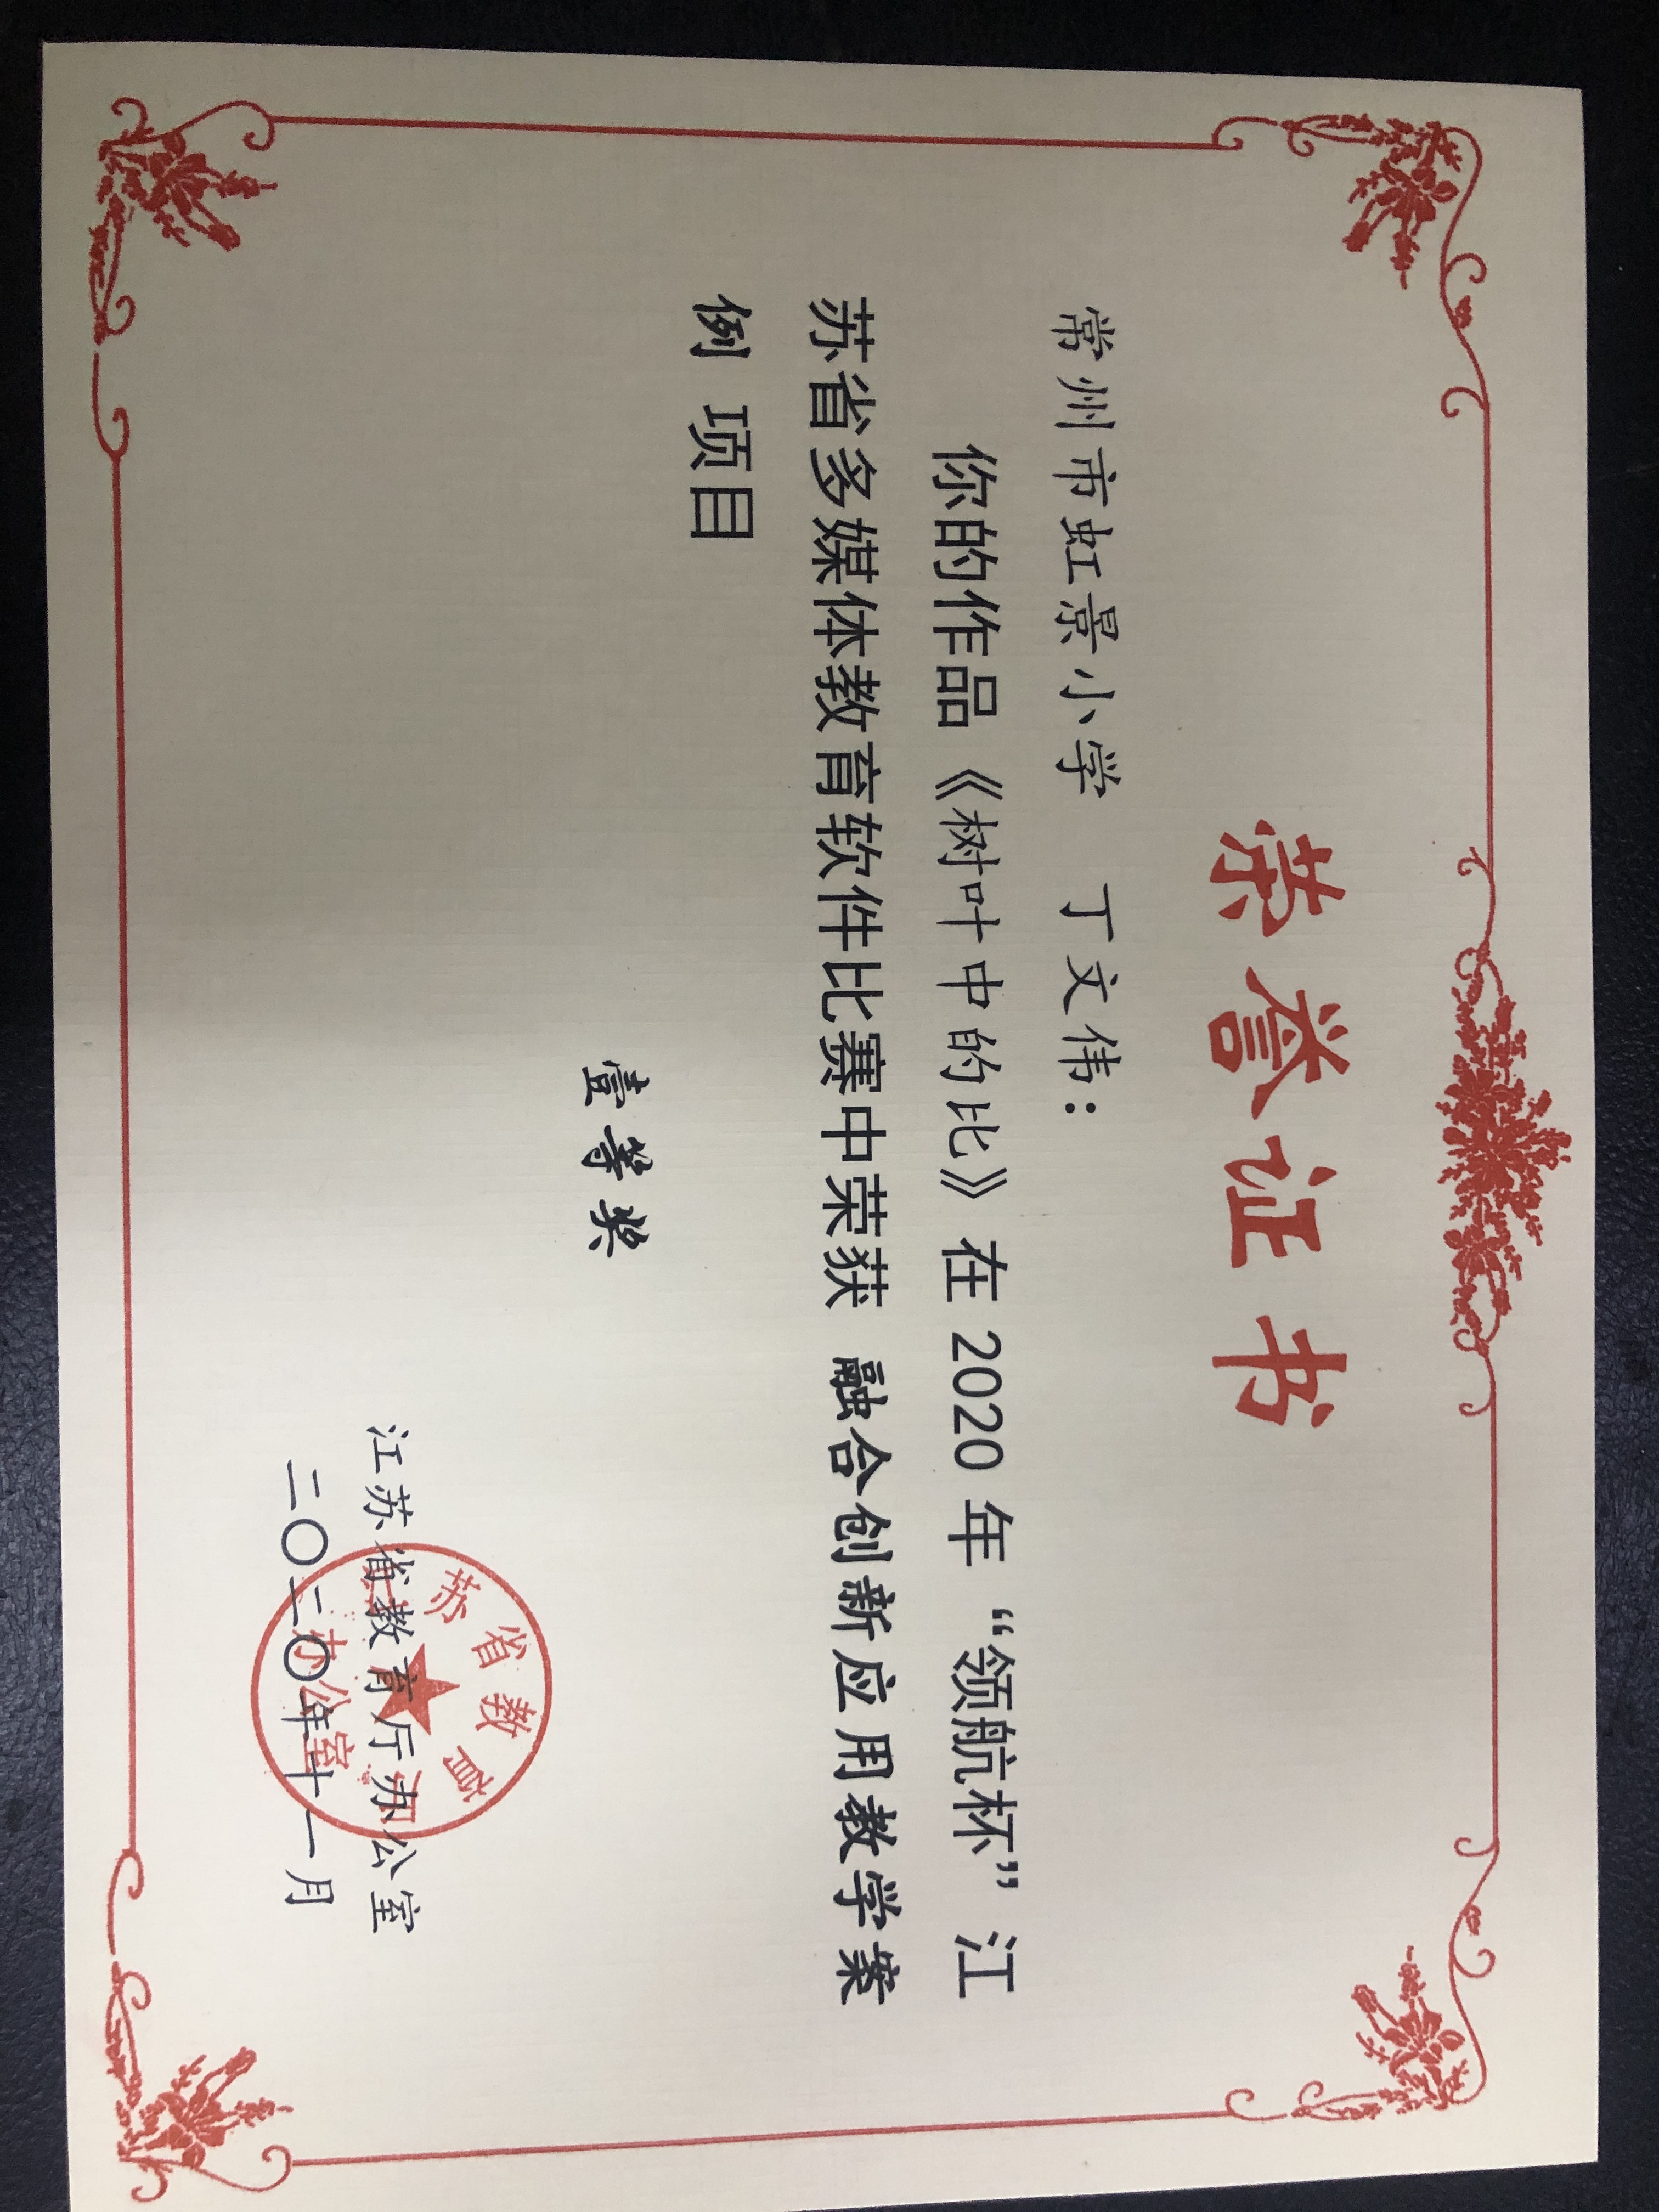 荣誉证书
常州市虹景小学 丁文伟：
你的作品《树叶中的比》在 2020 年“领航杯”江
苏省多媒体教育软件比赛中荣获 融合创新应用教学案
例 项目
壹等奖
江苏省教育厅办公室
二〇二〇年十一月
苏省教育
办公室